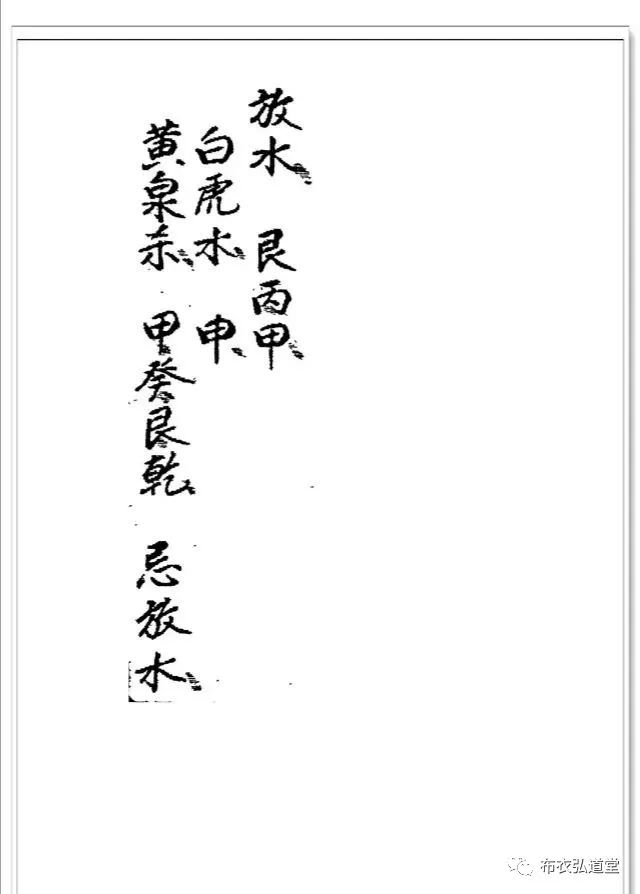 放水 艮丙甲
白虎水 申
黄泉杀 甲癸艮乾 忌放水
布衣弘道堂